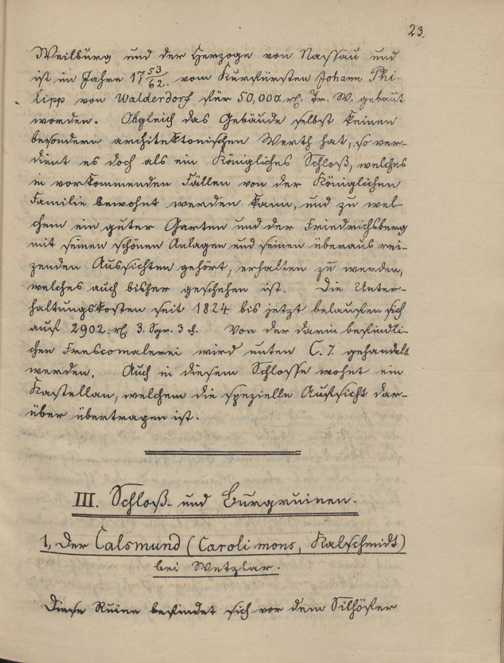 23.
Weilburg und der Herzoge von Nassau und
ist im Jahre 17 53/62. vom Kurfürsten Johann Phi-
lipp von Walderdorf für 50,000 rh. Tr. W. gebaut
worden. Obgleich das Gebäude selbst keinen
besondern architektonischen Werth hat, so ver-
dient es doch als ein Königliches Schloß, welches
in vorkommenden Fällen von der Königlichen
Familie bewohnt werden kann, und zu wel-
chem ein guter Garten und der Friedrichsberg
mit seinen schönen Anlagen und seinen überaus rei-
zenden Aussichten gehört, erhalten zu werden,
welches auch bisher geschehen ist. Die Unter-
haltungskosten seit 1824 bis jetzt belaufen sich
auf 2902 rh. 3. Sgr. 3 d. Von der darin befindli-
chen Frescomalerei wird unten C. 7. gehandelt
werden. Auch in diesem Schlosse wohnt ein
Kastellan, welchem die spezielle Aufsicht dar-
über übertragen ist.
III. Schloß- und Burgruinen.
1, Der Calsmund (Caroli mons, Kalschmidt)
bei Wetzlar.
Diese Ruine befindet sich vor dem Silhöfer